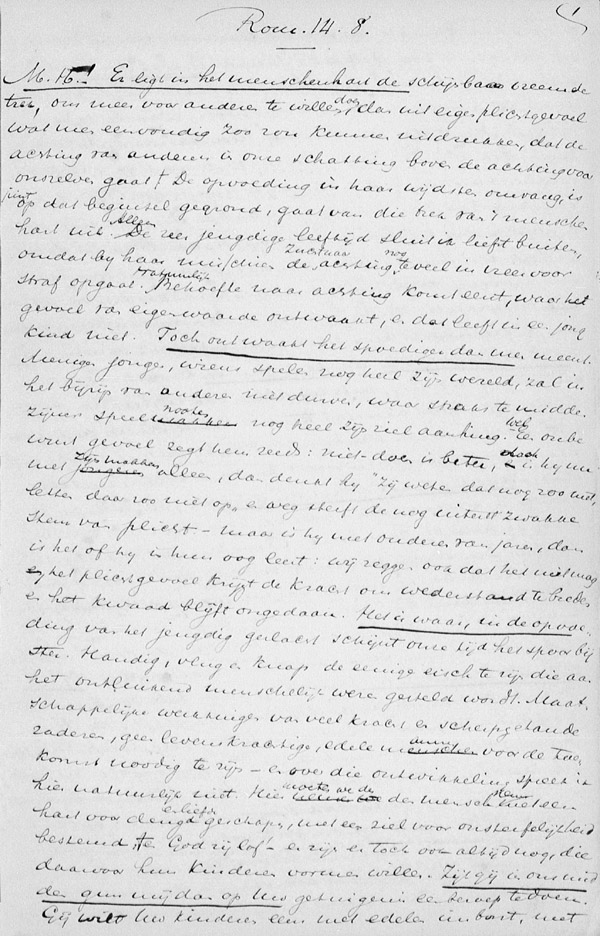 Rom. 14. 8.
1
M. H.! Er ligt in het menschenhart de schijnbaar vreemde
trek, om meer voor anderen te willen doen, dan uit eigen plichtgevoel
wat men eenvoudig zoo zou kunnen uitdrukken, dat de
achting van anderen in onze schatting boven de achting voor
onszelven gaat. De opvoeding in haar wijdsten omvang, is
juist op dat beginsel gegrond, gaat van die trek van 't menschen
hart uit. Alleen De zeer jeugdige leeftijd sluit ik liefst buiten,
omdat by haar die achting nog te veel in vrees voor
straf opgaat. Behoefte naar achting komt eerst, waar het
gevoel van eigenwaarde ontwaakt, en dat leeft in een jong
kind niet. Toch ontwaakt het spoediger dan men meent.
Menige jongen, wiens spelen nog heel zijn wereld, zal in
het bijzijn van anderen niet durven, waar straks te midden
zijner speelnooten nog heel zijn ziel aan hing. Een onbe
wust gevoel zegt hem reeds: niet doen is beter, is hy nu
met zijn makkers alleen, dan denkt hy "zij weten dat nog zoo niet,
letten daar zoo niet op, en weg sterft de nog uiterst zwakke
stem van plicht – maar is hy met ouderen van jaren, dan
is het of hy in hun oog leest: wij zeggen ook dat het niet mag
en het plichtgevoel krijgt de kracht om wederstand te bieden
en het kwaad blijft ongedaan. Het is waar, in de opvoe-
ding van het jeugdig geslacht schijnt onze tijd het spoor bijs-
ter. Handig, vlug en knap de eenige eisch te zijn die aan
het ontluikend menschelijk wezen gesteld wordt. Maat-
schappelijke werktuigen van veel kracht en scherpgetande
raderen, geen levenskrachtige, edele menschen voor de toe-
komst noodig te zijn – en over die ontwikkeling spreek ik
hier natuurlijk niet. Hier moeten we den mensch met een
hart voor deugd geschapen, met een ziel voor onsterfelijkheid
bestemd. En God zij lof – er zijn er toch ook altijd nog, die
daarvoor hun kinderen vormen willen. Zijt gij in ons mid
den gun mij dan op Uw getuigenis een beroep te doen.
Gij wilt Uw kinderen een met edelen inborst, met